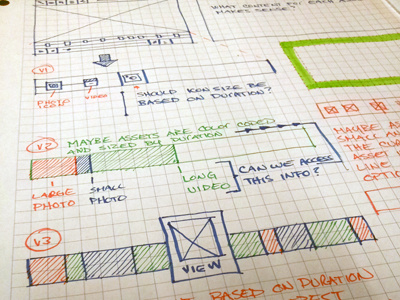 WHAT CONTENT FOR EACH A
MAKES SENSE?
V1
PHOTO
VIDEO
SHOULD ICON SIZE BE
BASED ON DURATION?
V2
MAYBE ASSETS ARE COLOR CODED
AND SIZED BY DURATION
LARGE
PHOTO
SMALL
PHOTO
LONG
VIDEO
CAN WE ACCESS
THIS INFO?
MAYBE AS
SMALL AN
THE CUR
ASSET
LINE
OPTIO
V3
VIEW
BASED ON DURATION